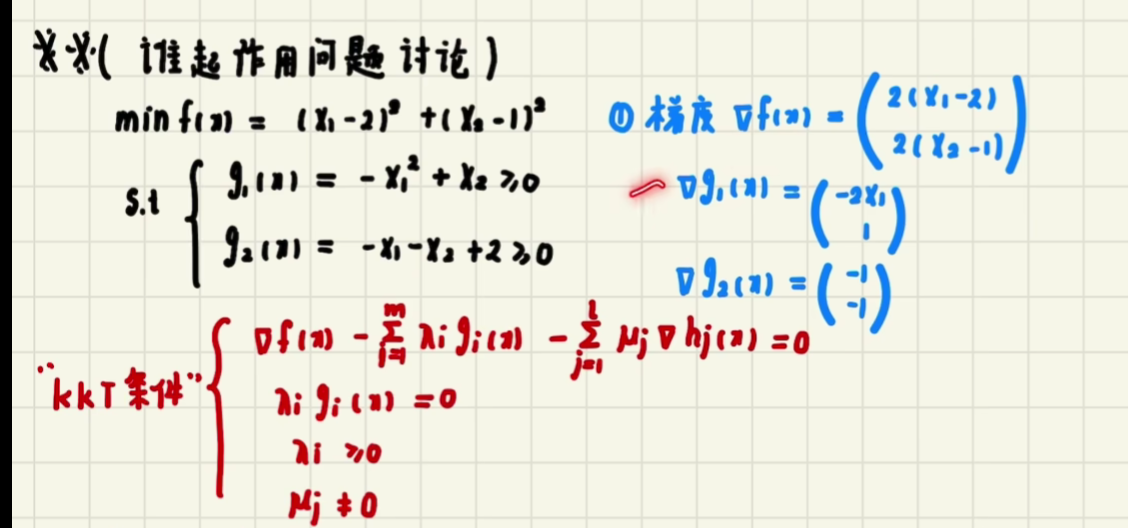 ※※(谁起作用问题讨论)
min f(x) = (x₁-2)² +(x₂-1)²
s.t { g₁(x) = -x₁² + x₂ ≥0
g₂(x) = -x₁-x₂ +2 ≥0
① 梯度 ∇f(x) = ( 2(x₁-2)
2(x₂-1) )
∇g₁(x) = ( -2x₁
1 )
∇g₂(x) = ( -1
-1 )
"kkT条件" { ∇f(x) - ∑_{i=1}^{m} λi gi(x) - ∑_{j=1}^{l} μj ∇hj(x) =0
λi gi(x) =0
λi ≥0
μj ≠ 0